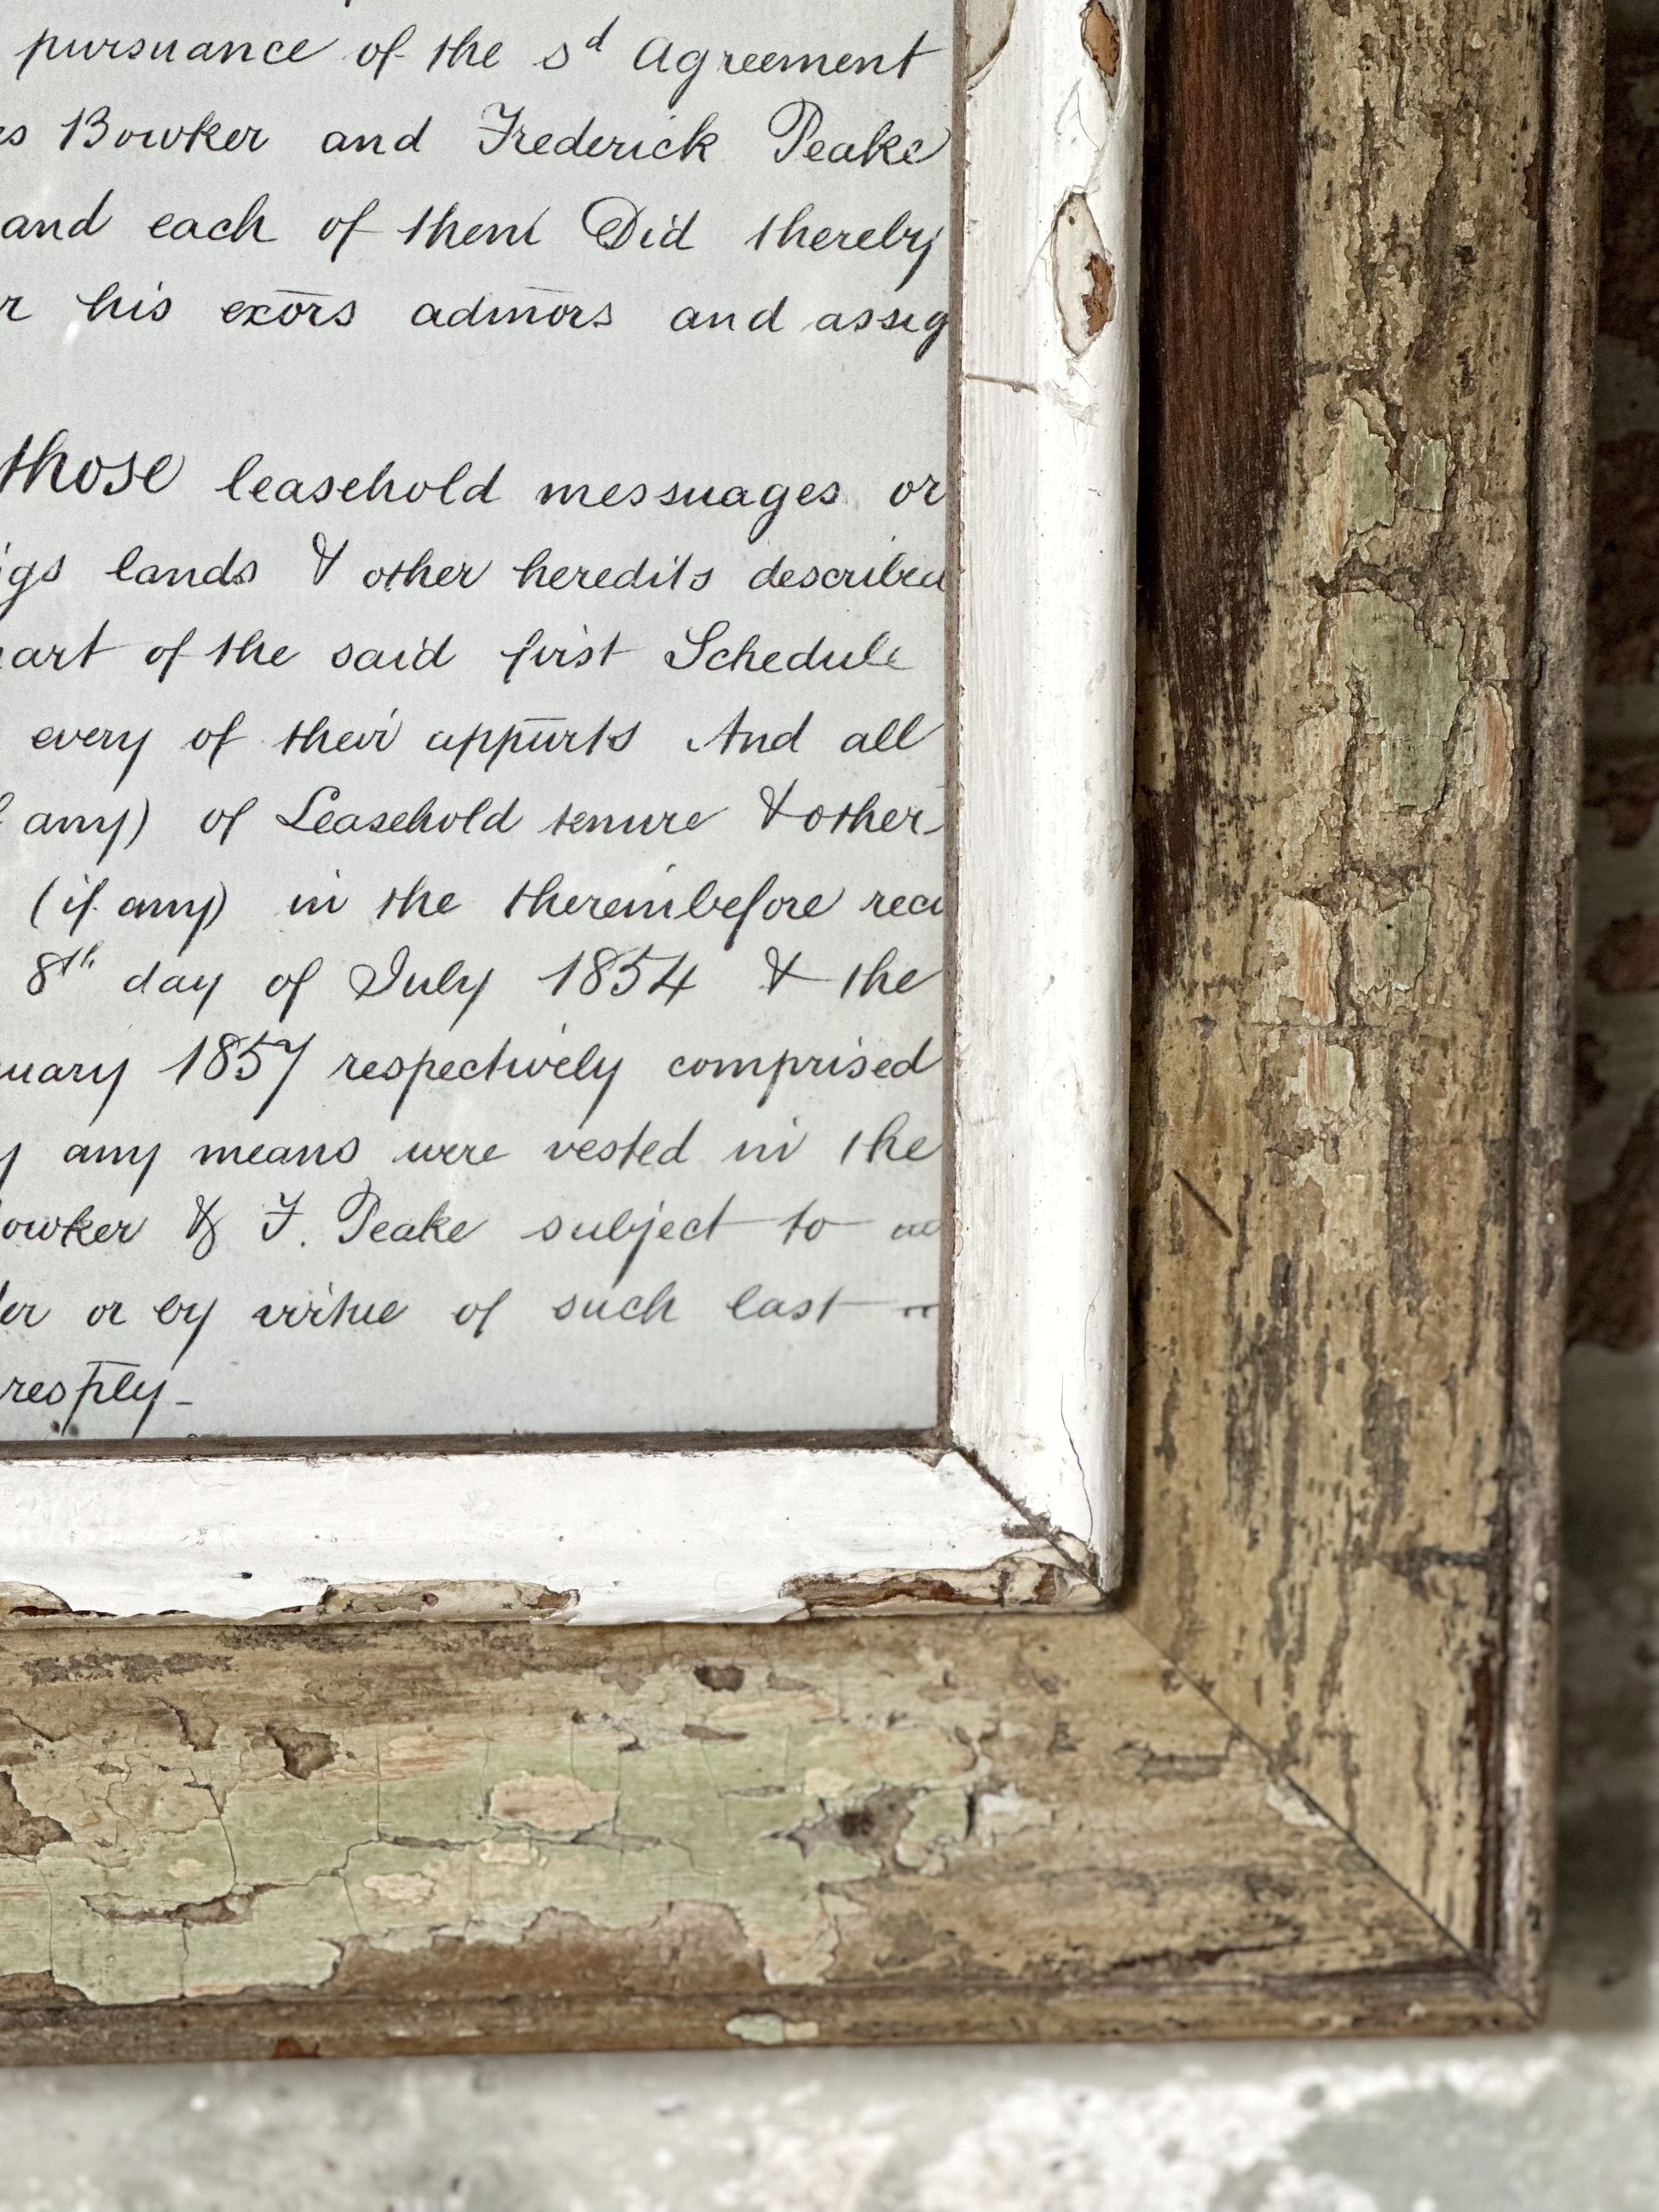 pursuance of the sd Agreement
Bowker and Frederick Peake
and each of them Did thereby
his exors admors and assig
those leasehold messuages or
lands & other heredits described
of the said first Schedule
every of their appurts And all
any) of Leasehold tenure & other
(if any) in the thereinbefore reci
8th day of July 1854 & the
uary 1857 respectively comprised
any means were vested in the
owker & F. Peake subject to
or by virtue of such last
resply-